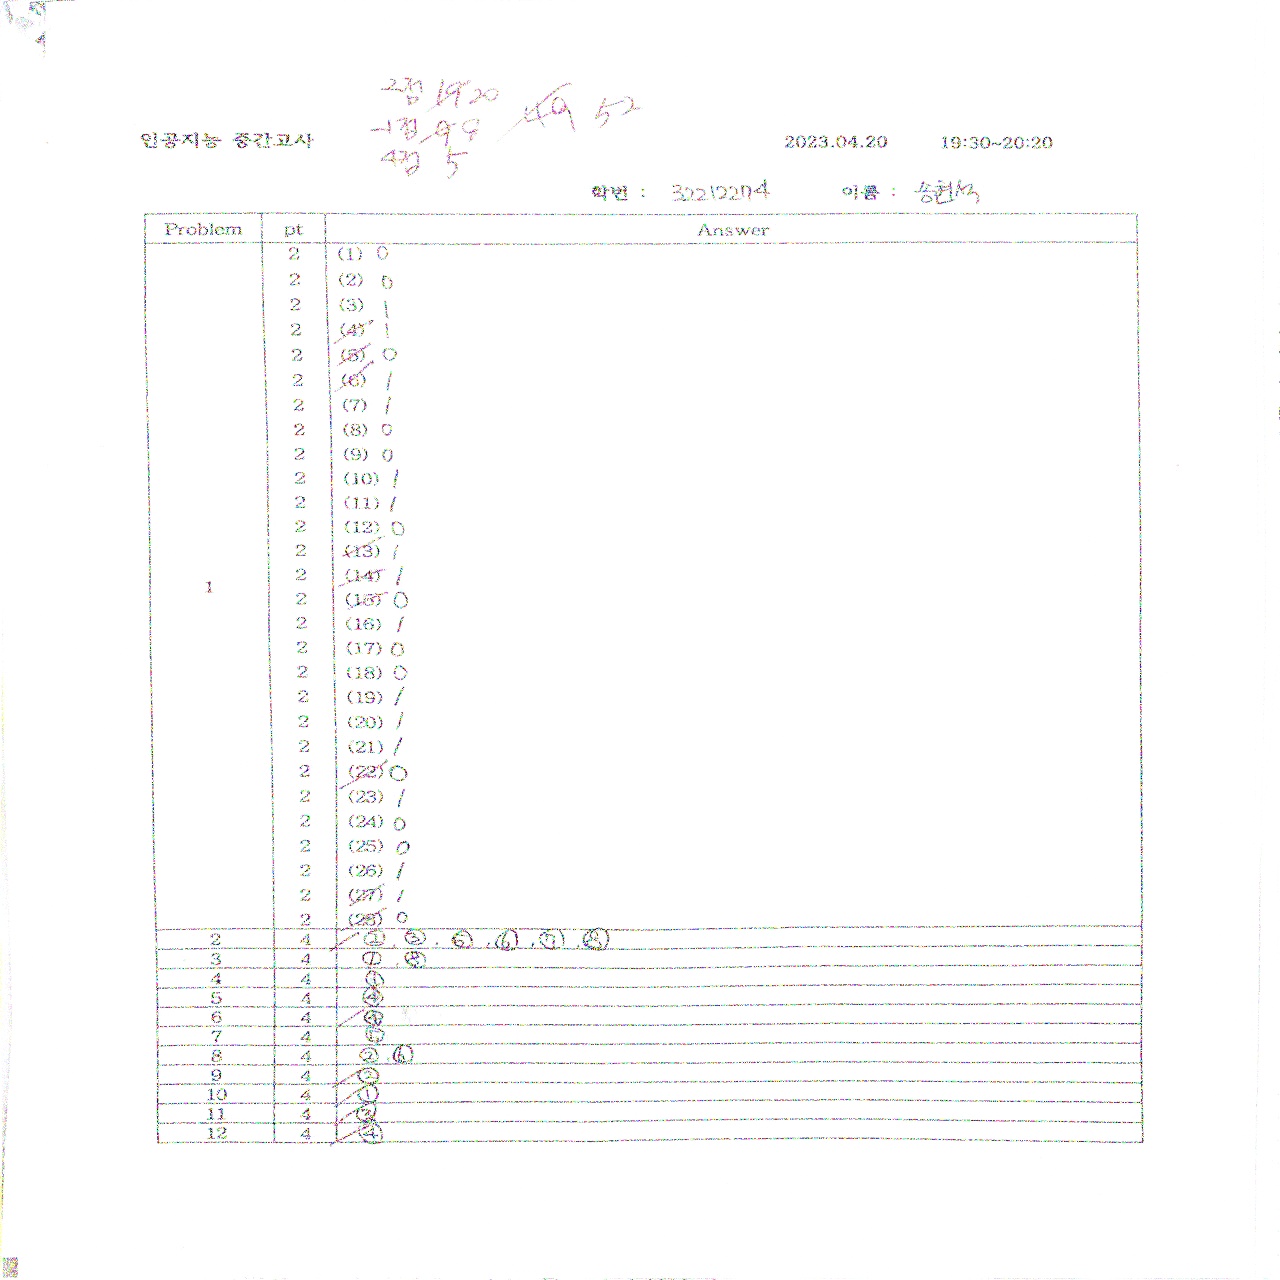 2점 19 20
-1점 9 9 49 52
4점 5
인공지능 중간고사 2023.04.20 19:30~20:20
학번 : 32212204 이름 : 송현석
Problem pt Answer
2 (1) 0
2 (2) 0
2 (3) 1
2 (4) 1
2 (5) 0
2 (6) 1
2 (7) 1
2 (8) 0
2 (9) 0
2 (10) 1
2 (11) 1
2 (12) 0
2 (13) 1
2 (14) 1
1
2 (15) 0
2 (16) 1
2 (17) 0
2 (18) 0
2 (19) 1
2 (20) 1
2 (21) 1
2 (22) 0
2 (23) 1
2 (24) 0
2 (25) 0
2 (26) 1
2 (27) 1
2 (28) 0
2 4 ①, ②, ⑤, ⑥, ⑦, ⑧
3 4 ①, ④
4 4 ③
5 4 ④
6 4 ④
7 4
8 4 ②, ⑥
9 4 ②
10 4 ①
11 4 ③
12 4 ④